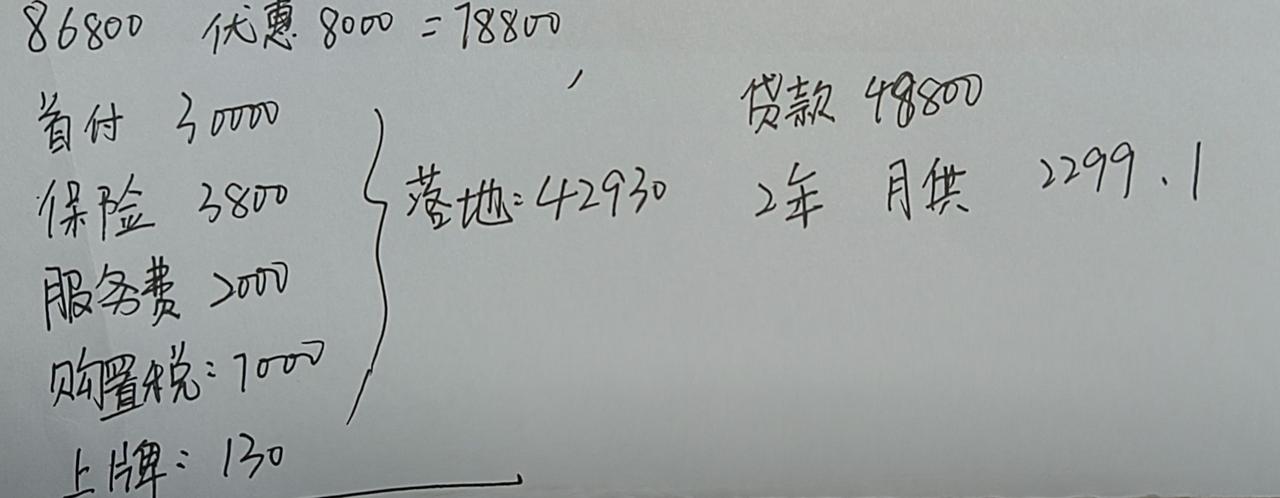 86800 优惠 8000 = 78800
首付 30000
保险 3800
服务费 2000
购置税: 7000
上牌: 130
落地: 42930
贷款 48800
2年 月供 2299.1